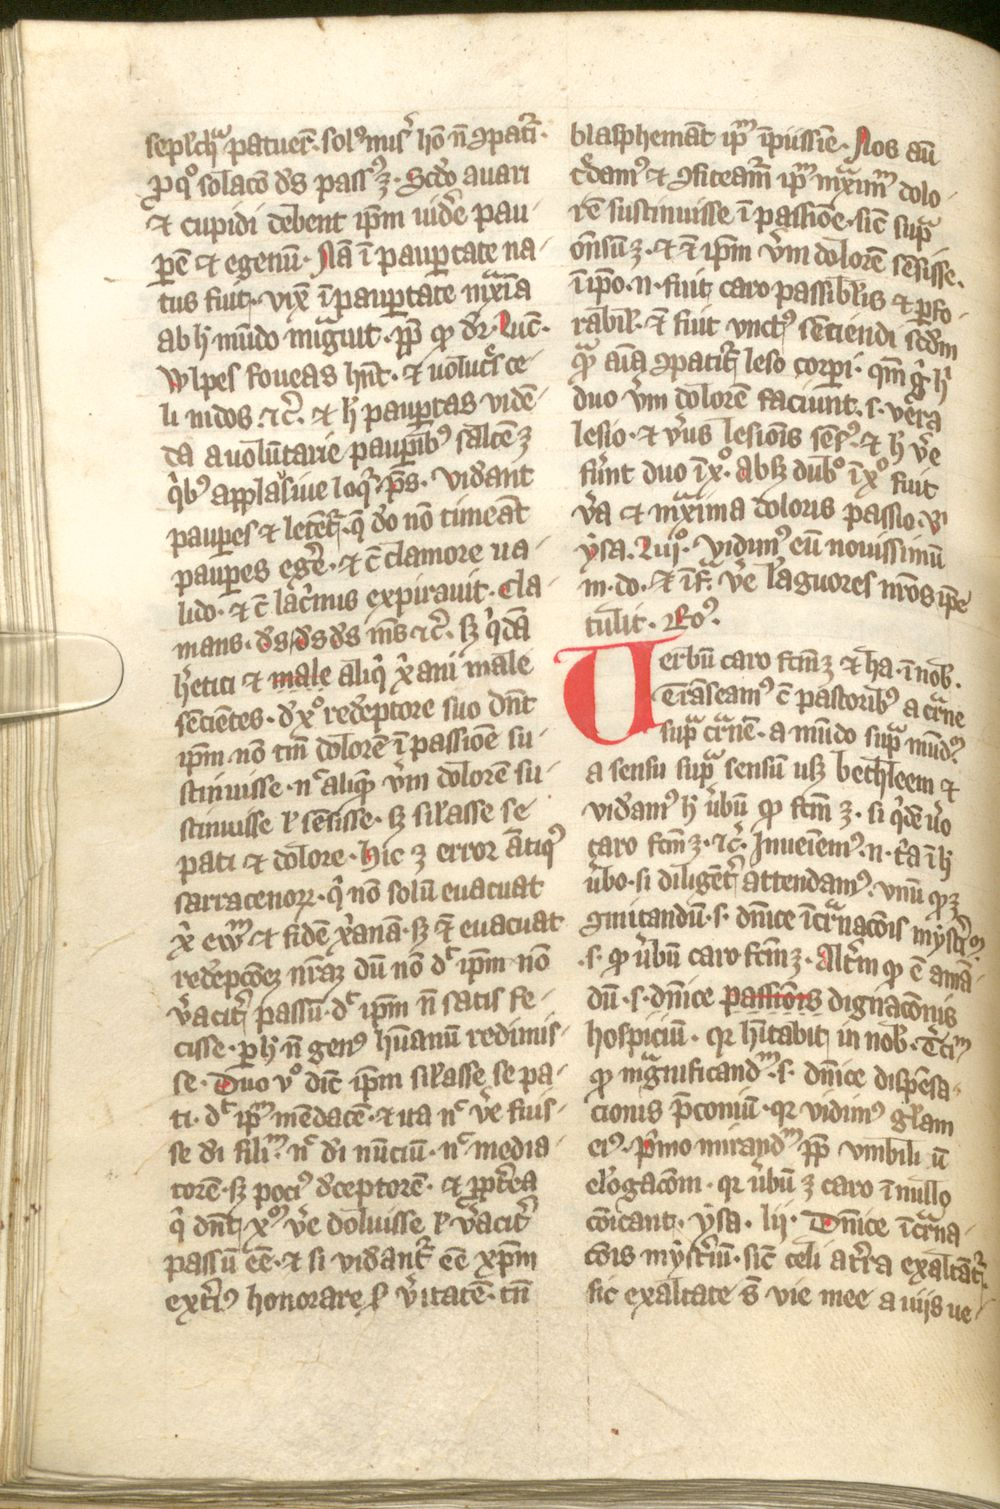 seplchᷓ patuer̄t. sol᷒ mis᷑ hō n̄ ꝯpati᷑.
ꝓ qͦ solacō ds̄ pass᷒ ꝫ. Scd̄o auari
et cupidi debent ip̄m uid̓e pau-
ꝑē et egenū. Nā ī pauꝑtate na-
tus fuit. vixͭ ī pauꝑtate mx̄ia
ab h̓ mūdo migᷓuit. ꝓp̄ ꝙ dr̄. Luc̄.
Wlpes foueas hn̄t. et uoluc᷑s ce-
li nidos ⁊c̄. et h̓ pauꝑtas vidē-
da a volūtarie pauꝑib᷒ saltē ꝫ
q̓b᷒ applau̓siue loq̓᷑ ps̄. Vid̓ant
pauꝑes et letēt᷑. q̄ d̓o nō timeāt
pauꝑes eg̓e. et c̄ clamore ua-
lido. et c̄ lac̓mis expirauit. Cla-
mans. ds̄ ds̄ ds̄ ms̄ ⁊c̄. sꝫ q̓dā
h̓etici et male aliq̓ xᷓani male
sēcientes. d̓ xͦ red̓eptore suo dn̄t
ip̄m nō tm̄ dolorē ī passiōe su-
stinuisse. nͨ aliqͣ v̓m dolorē su-
stinuisse ł sēsisse. sꝫ sil̓asse se
pati et dolore. Hic ꝫ error ātiq᷒
sarracenoꝝ. q̓ nō solū euacuat
x̓ et fidē x̓anā. sꝫ et̄ euacuat
red̓epcōeꝫ nr̄aꝫ dū nō dͨ ip̄m nō
v̓acit᷑ passū. dͨ ip̄m n̄ satis fe-
cisse. ꝑ h̓ n̄ gen᷒ hūanū redimis-
se. Duo vͦ dic̄ ip̄m sil̓asse se pa-
ti. dͨ ip̄m mēdacē. et ita nͨ v̓e fuis-
se di filiͫ. nͨ di nūciū. nͨ media
torē. sꝫ poci᷒ d̓ceptorē. et ꝓpt̓ea
q̓ dn̄t xͫ v̓e doluisse ł v̓acit᷑
passū eē. et si vid̓ant᷑ eē xp̄m
ext̓i᷒ honorare ł v̓itatē. tn̄
blasphemāt ip̄m īpiissie. Nos aū
c̓dam᷒ et ꝯfiteam᷑ ip̄m mᷓximͫ dolo-
rē sustinuisse ī passiōe. sic̄ supᷓ
ōn̄sū ꝫ. et et̄ ip̄m v̓m dolorē sēsisse.
ī ip̄o. n. fuit caro passiblis et ꝑfo-
rabil̓. et̄ fuit vnct᷒ sēciendi scd̄m
qͣ aīa ꝯpatit᷑ leso corꝑi. qm̄ g̓ h̓
duo v̓m dolorē faciunt. s. vēra
lesio. et v̓us lesiōis sēs᷒. et h̓ v̓e
fūnt duo ī xͦ. Absꝫ dubͦ ī xͦ fuit
v̓a et mᷓxima doloris passio. vͭ
ẏsa. Liijͦ. Vidim᷒ eū nouissimū
m. do. et if᷑. v̓e lāguores nr̄os ip̄e
tulit. Rͦ.
Verbū caro fcm̄ ꝫ et ha. ī nob.
Trāseam᷒ c̄ pastorib᷒ a cᷓrne
supᷓ cᷓrnē. a mūdo supᷓ mūd᷒
a sensu supᷓ sensū usꝫ bethleem et
vid̓am᷒ h̓ v̓bū ꝙ fcm̄ ꝫ. si q̓dē v̓o
caro fcm̄ ꝫ. ⁊c̄. Inueiem᷒. n. t̓a ī h̓
v̓bo. si diligēt᷑ attendam᷒. vnū qͦꝫ
ꝯmitandū. s. dn̄ice īcᷓnacōis mẏst̓iͫ
.s. ꝙ v̓bū caro fcm̄ ꝫ. Alt̓m ꝙ ē amā-
dū. s. dn̄ice passiōis dignacōnis
hospiciū. qꝛ hītabit in nob. T̓ciͫ
ꝙ mᷓgnificandͫ. s. dn̄ice dispēsa-
cionis p̄coniū. qꝛ vidim᷒ glam
ei᷒. p̓mo mirandͫ ꝓp̄ vmbili ū
el̓ogacōm. qꝛ v̓bū ꝫ caro ī nullo
cōicant. ẏsa. lij. Dn̄ice īcᷓna-
cōis mẏst̓iū. sic̄ celi a t̓ra exaltāt᷑
sic exaltate s̄ vie mee a uijs ue